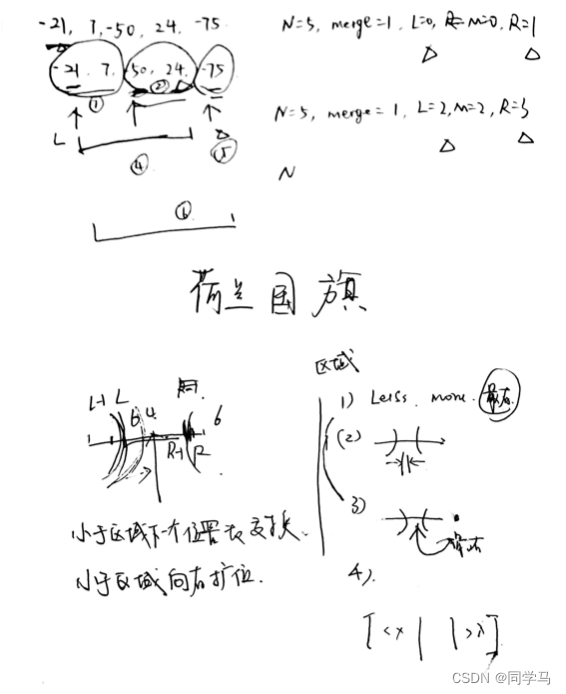 -21, 7, -50, 24, -75
-21, 7, -50, 24, -75
① ②
L ④ ⑤
⑥
N=5, merge=1, L=0, M=0, R=1
N=5, merge=1, L=2, M=2, R=3
N
荷兰国旗
L-1 L
6 4 6
R-1 R
小于区域下一个位置交换
小于区域向右扩位.
区域
1) Less, more. 最右
(2)
3)
最右
4).
[ <x | | >x ]
CSDN @同学马